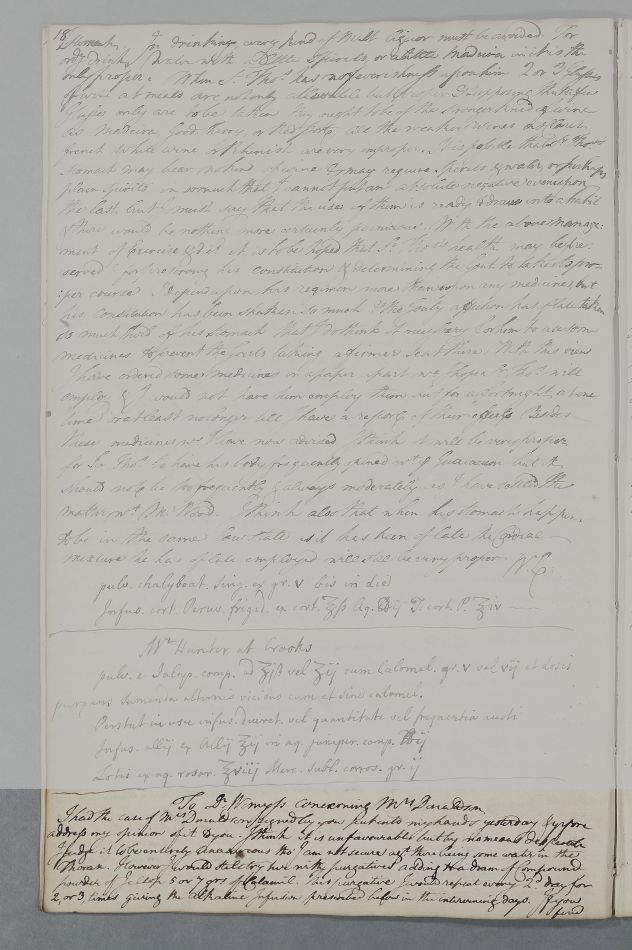 18/
Stomach. In drinking every kind of Malt liquor must be avoided. For
ordy drink Water with a little Spirits, or a little Madeira in it is the
only proper. When Sr Thos. has no feverishness upon him 2 or 3 glasses
of wine at meals are not only allowable but proper & supposing that a few
Glasses only are to be taken they ought to be of the stronger kind of wine
as Madeira, Good Sherry, or Red Port, all the weaker wines as Claret
french White wine or Rhenish are very improper. It is possible that Sr Thos's
stomach may bear no kind of wine & may require Spirits & water, or perhaps
plain Spirits in so much that I cannot put an absolute negative even upon
the last, but I must say that the use of them is ready to draw into a habit
& there would be nothing more certainly pernicious. With the above manage:
ment of Exercise & diet it is to be hoped that Sr Thos's health may be pre:
served & for preserving his constitution & determining the Gout to take its pro=
:per course I depend upon his regimen more than upon any medicines, but
his constitution has been shaken so much & the Gouty affection has of late taken
so much hold of his stomach that I do think it necessary for him to use some
medicines to prevent the Gouts taking a firmer seat there. With this view
I have ordered some medicines in a paper apart wch I hope Sr Thos. will
employ & I would not have him employ them but for a fortnight at one
time or at least no longer till I have a report of their effects. Besides
these medicines wch I have now advised I think it will be very proper
for Sir Thos. to have his body frequently opened wt ye Guaiacum but it
should not be too frequently & always moderately as I have settled the
matter wt Mr Wood. I think also that when his stomach happens
to be in the same low state as it has been of late the Cordial
mixture he has of late employed will still be very proper. W.C.
pulv. chalybeat. Sing. ex gr. v bis in die
Infus. cort. Peruv. frigid. ex cort. ℥ß Aq. ℔ij T. cort. P. ℥iv
Mrs Hunter at Crooks
pulv. e Jalap. comp. ad ʒjß vel ʒij cum Calomel. gr. v vel vij et dosis
purgans sumenda alternis vicibus cum et sine calomel.
Perstat in usu infus. diuret. vel quantitate vel frequentia aucti
Infus. allij ex Allij ℥ij in aq. juniper. comp. ℔ij
Lotio ex aq. rosar. ℥viij Merc. subl. corros. gr. ij
To Dr Wemyss concerning Mrs Donaldson
I had the case of Mrs Donaldson signed by you put into my hands yesterday & yrfore
address my opinion of it to you. I think it is unfavourable but by no means desperate
I judge it to be entirely Anasarcous tho' I am not secure agt there being some water in the
Thorax. However I would still try her with purgatives adding to a dram of compound
powder of Jallap 5 or 7 grs of Calomel. This purgative I would repeat every 2d day for
2, or 3, times giving the alkaline infusion prescribed below in the intervening days. If you
find